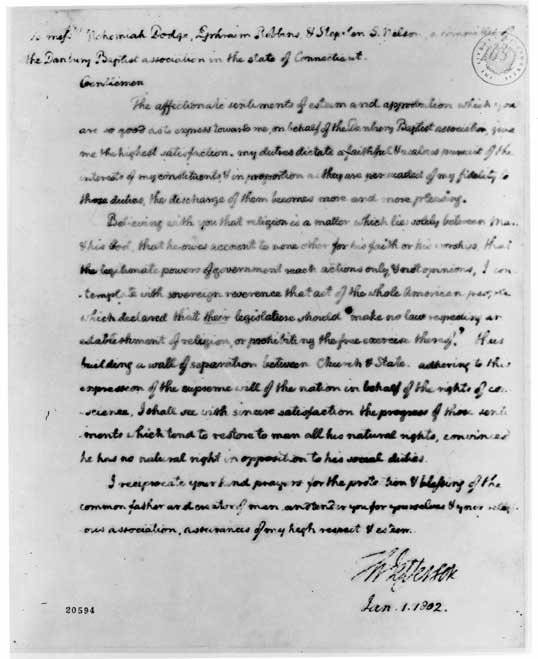 To mess.rs Nehemiah Dodge, Ephraim Robbins, & Stephen S. Nelson, a committee of
the Danbury Baptist association in the state of Connecticut.
Gentlemen
The affectionate sentiments of esteem and approbation which you
are so good as to express towards me, on behalf of the Danbury Baptist association, give
me the highest satisfaction. my duties dictate a faithful & zealous pursuit of the
interests of my constituents, & in proportion as they are persuaded of my fidelity to
those duties, the discharge of them becomes more and more pleasing.
Believing with you that religion is a matter which lies solely between Man
& his God, that he owes account to none other for his faith or his worship, that
the legitimate powers of government reach actions only, & not opinions, I con-
-template with sovereign reverence that act of the whole American people
which declared that their legislature should "make no law respecting an
establishment of religion, or prohibiting the free exercise thereof," thus
building a wall of separation between Church & State. adhering to this
expression of the supreme will of the nation in behalf of the rights of con-
-science, I shall see with sincere satisfaction the progress of those senti-
-ments which tend to restore to man all his natural rights, convinced
he has no natural right in opposition to his social duties.
I reciprocate your kind prayers for the protection & blessing of the
common father and creator of man, and tender you for yourselves & your religi-
-ous association, assurances of my high respect & esteem.
Th Jefferson
Jan. 1. 1802.
20594